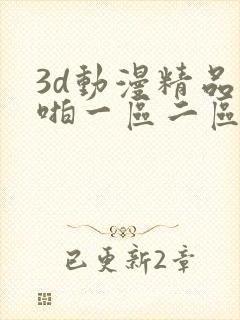 3d動漫精品
啪一區二區
已更新2章